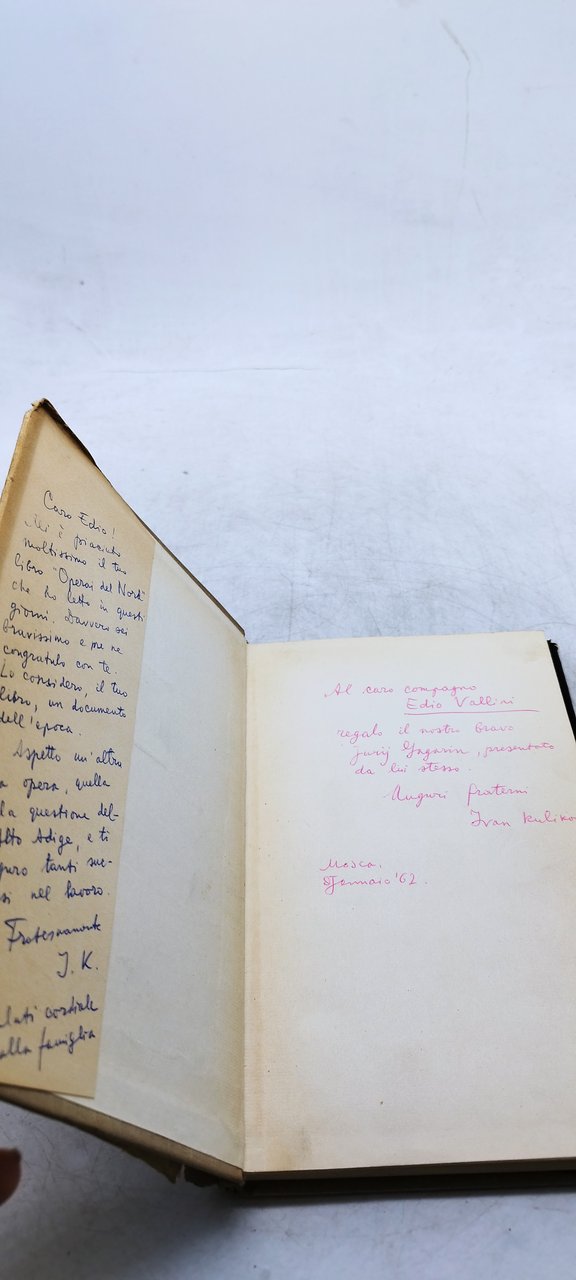 Caro Edio!
Mi è piaciuto
moltissimo il tuo
libro "Operai del Nord"
che ho letto in questi
giorni. Davvero sei
bravissimo e me ne
congratulo con te.
Lo considero, il tuo
libro, un documento
dell'epoca.
Aspetto un'altra
a opera, quella
la questione del-
Alto Adige, e ti
guro tanti suc-
si nel lavoro.
Fraternamente
I. K.
luti cordiali
alla famiglia
Al caro compagno
Edio Vallini
regalo il nostro bravo
jurij Gagarin, presentato
da lui stesso.
Auguri fraterni
Ivan Kuliko
Mosca.
Gennaio '62.